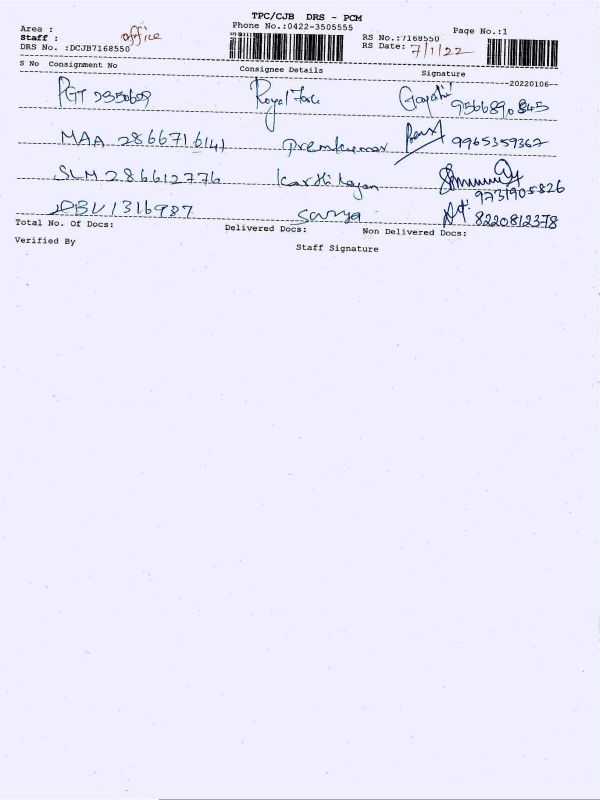 TPC/CJB DRS - PCM
Area :
Phone No.:0422-3505555
Page No.:1
Staff : office
RS No.:7168550
DRS No. :DCJB7168550
RS Date: 7/1/22
S No Consignment No Consignee Details Signature
--20220106--
PGT 2350609 Royal Gayathri
MAA 286671614 Premkumar 9965359367
SLM 286612776 Karthikeyan 9731905826
1316987 Surya 8220812378
Total No. Of Docs: Delivered Docs: Non Delivered Docs:
Verified By Staff Signature